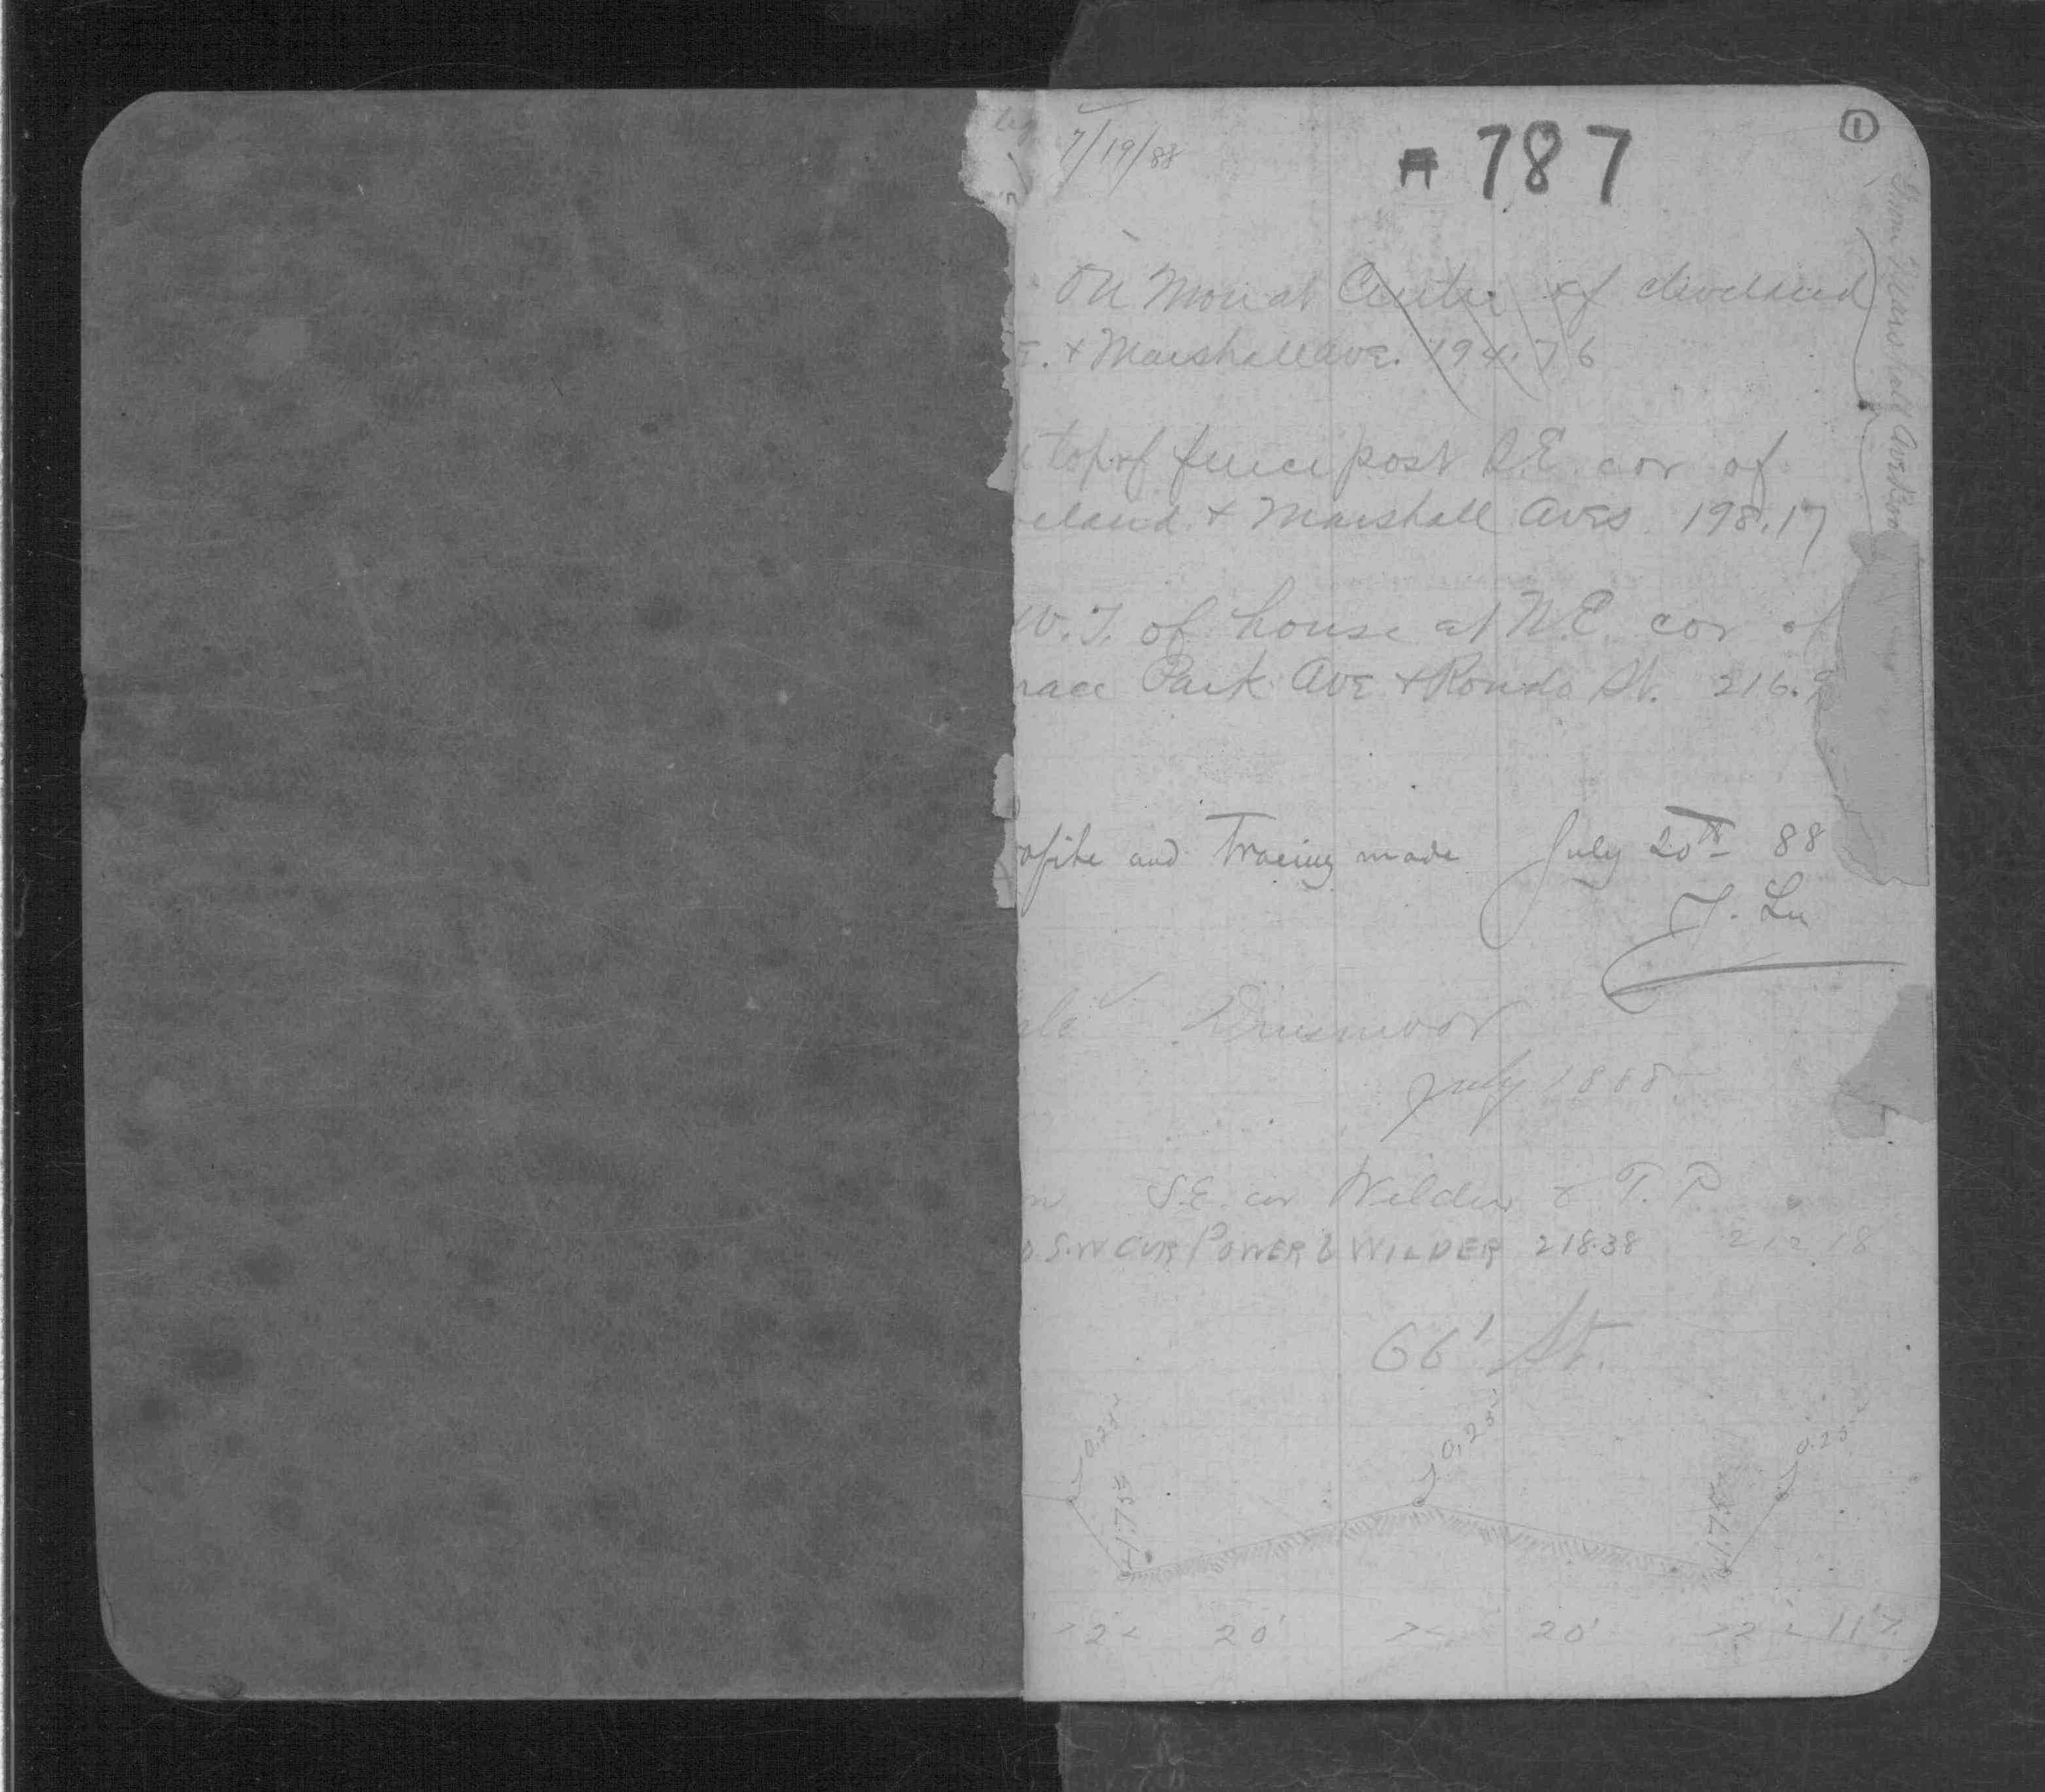 7/19/88
# 787
1
On Mon at Center of Cleveland
. + Marshall Ave. 194.76
top of fence post S.E. cor of
eland + Marshall Aves 198.17
W.T. of house at N.E. cor of
race Park Ave + Rondo St. 216.
From Marshall Ave Boo
ofile and Tracing made July 20th 88
T. Lu
Dunsmoor
July 1888
S.E. cor Wilder & T. P.
S.W COR POWER & WILDER 218.38 212 18
66' St.
0.25 0.25 0.25
-1.75 -1.75
>2< 20' >< 20' >2< 11'>